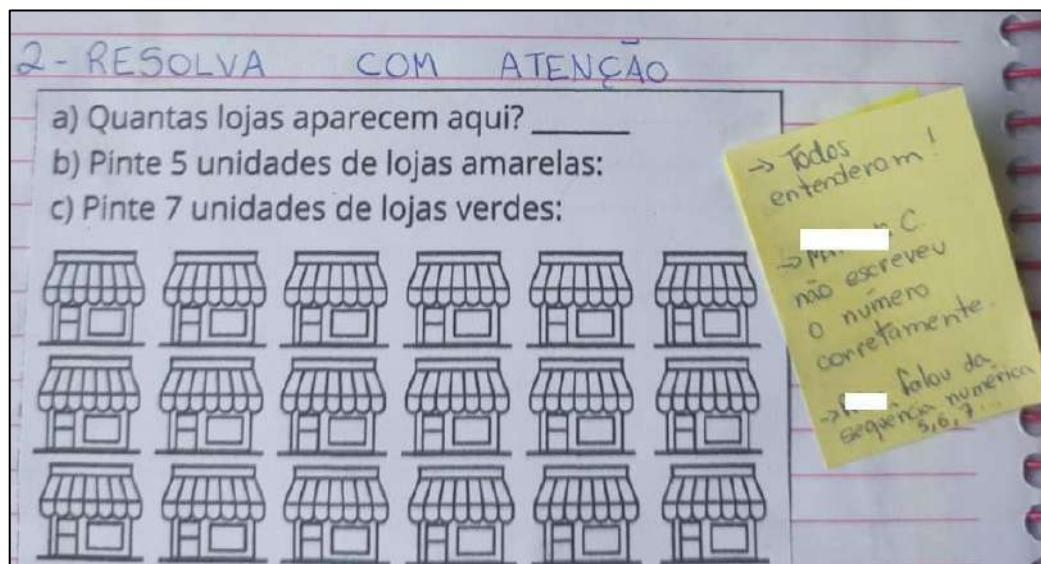 2 - RESOLVA COM ATENÇÃO
a) Quantas lojas aparecem aqui? _______
b) Pinte 5 unidades de lojas amarelas:
c) Pinte 7 unidades de lojas verdes:
→ Todos
entenderam!
→ C.
não escreveu
o número
corretamente.
→ falou da
sequência numérica
5, 6, 7...